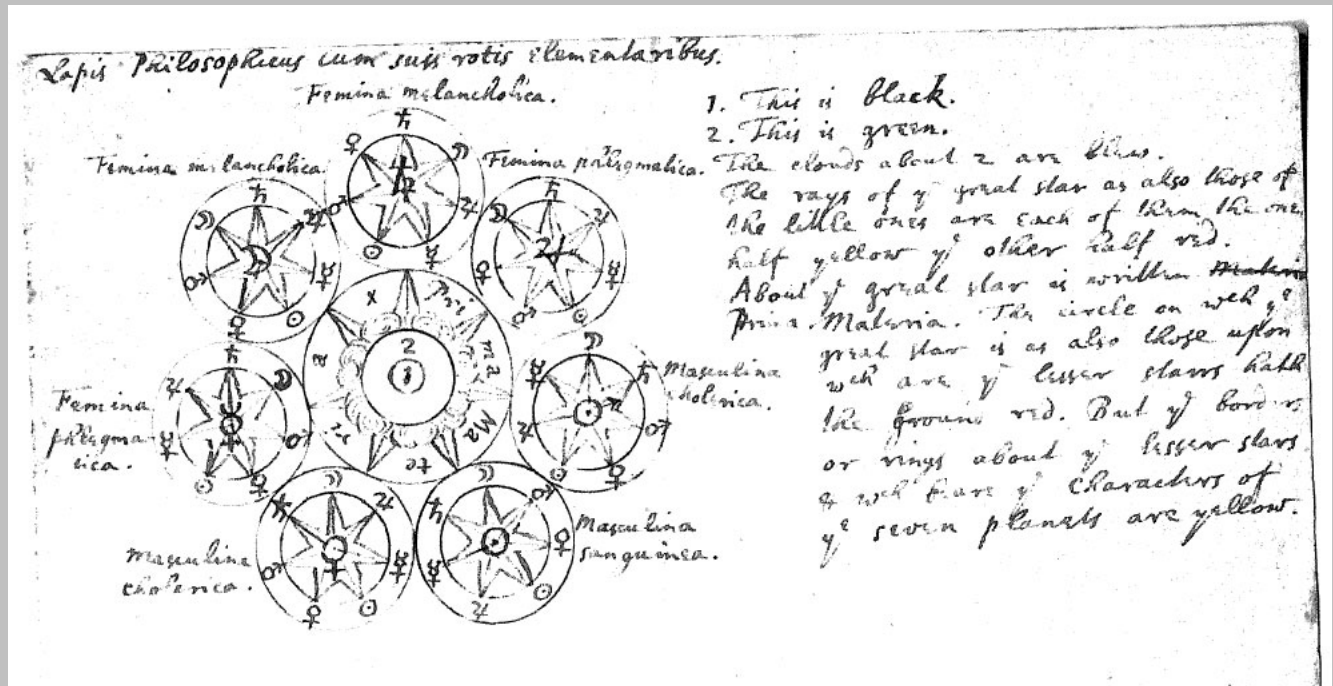 Lapis Philosophicus cum suis rotis elementaribus.
Femina melancholica.
Femina melancholica.
Femina phlegmatica.
Femina
phlegma
tica.
Masculina
cholerica.
Masculina
cholerica.
Masculina
sanguinea.
♄ ☽ ♃ ☿ ☉ ♂ ♀
Pri
ma
Ma
te
1
2
1. This is black.
2. This is green.
The clouds about 2 are blew.
The rays of yͤ great star as also those of
the little ones are each of them the one
half yellow yͤ other half red.
About yͤ great star is written
Prima Materia. The circle on wch yͤ
great star is as also those upon
wch are yͤ lesser starrs hath
the ground red. But yͤ borders
or rings about yͤ lesser stars
& wch beare yͤ characters of
yͤ seven planets are yellow.